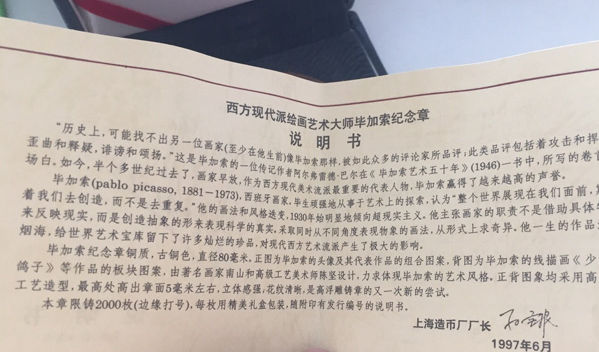 西方现代派绘画艺术大师毕加索纪念章
说明书
“历史上,可能找不出另一位画家(至少在他生前)像毕加索那样,被如此众多的评论家所品评;此类品评包括着攻击和捍
歪曲和释疑,诽谤和颂扬。”这是毕加索的一位传记作者阿尔弗雷德·巴尔在《毕加索艺术五十年》(1946)一书中,所写的卷首
场白。如今,半个多世纪过去了,画家早故,作为西方现代美术流派最重要的代表人物,毕加索赢得了越来越高的声誉。
毕加索(pablo picasso, 1881-1973),西班牙画家,毕生顽强地从事于艺术上的探索,认为“整个世界展现在我们面前,
着我们去创造,而不是去重复。”他的画法和风格迭变,1930年始明显地倾向超现实主义。他主张画家的职责不是借助具体
来反映现实,而是创造抽象的形来表现科学的真实,采取同时从不同角度表现物象的画法,从形式上求奇异。他一生的作品
烟海,给世界艺术宝库留下了许多灿烂的珍品,对现代西方艺术流派产生了极大的影响。
毕加索纪念章铜质,古铜色,直径80毫米,正图为毕加索的头像及其代表作品的组合图案,背图为毕加索的线描画《少
鸽子》等作品的板块图案,由著名画家南山和高级工艺美术师陈坚设计,力求体现毕加索的艺术风格,正背图象均采用高
工艺造型,最高处高出章面5毫米左右,立体感强,花纹清晰,是高浮雕铸章的又一次新的尝试。
本章限铸2000枚(边缘打号),每枚用精美礼盒包装,随附印有发行编号的说明书。
上海造币厂厂长
1997年6月